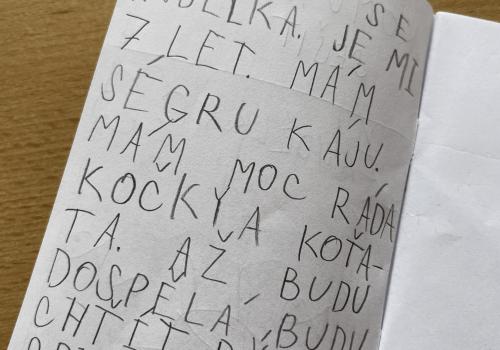 SE
JE MI
7 LET. MÁM
SÉGRU KÁJU.
MÁM MOC RÁDA
KOČKY A KOŤA-
TA. AŽ BUDU
DOSPĚLÁ BUDU
CHTÍT